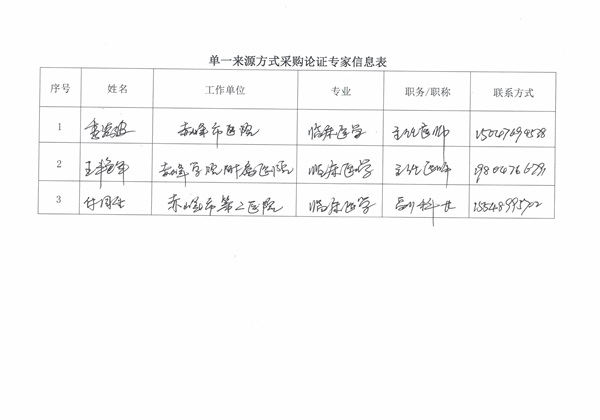 单一来源方式采购论证专家信息表
序号 姓名 工作单位 专业 职务/职称 联系方式
1 赤峰市医院 临床医学 主任医师
2 王艳军 赤峰学院附属医院 临床医学 主任医师
3 赤峰市第二医院 临床医学 副科长